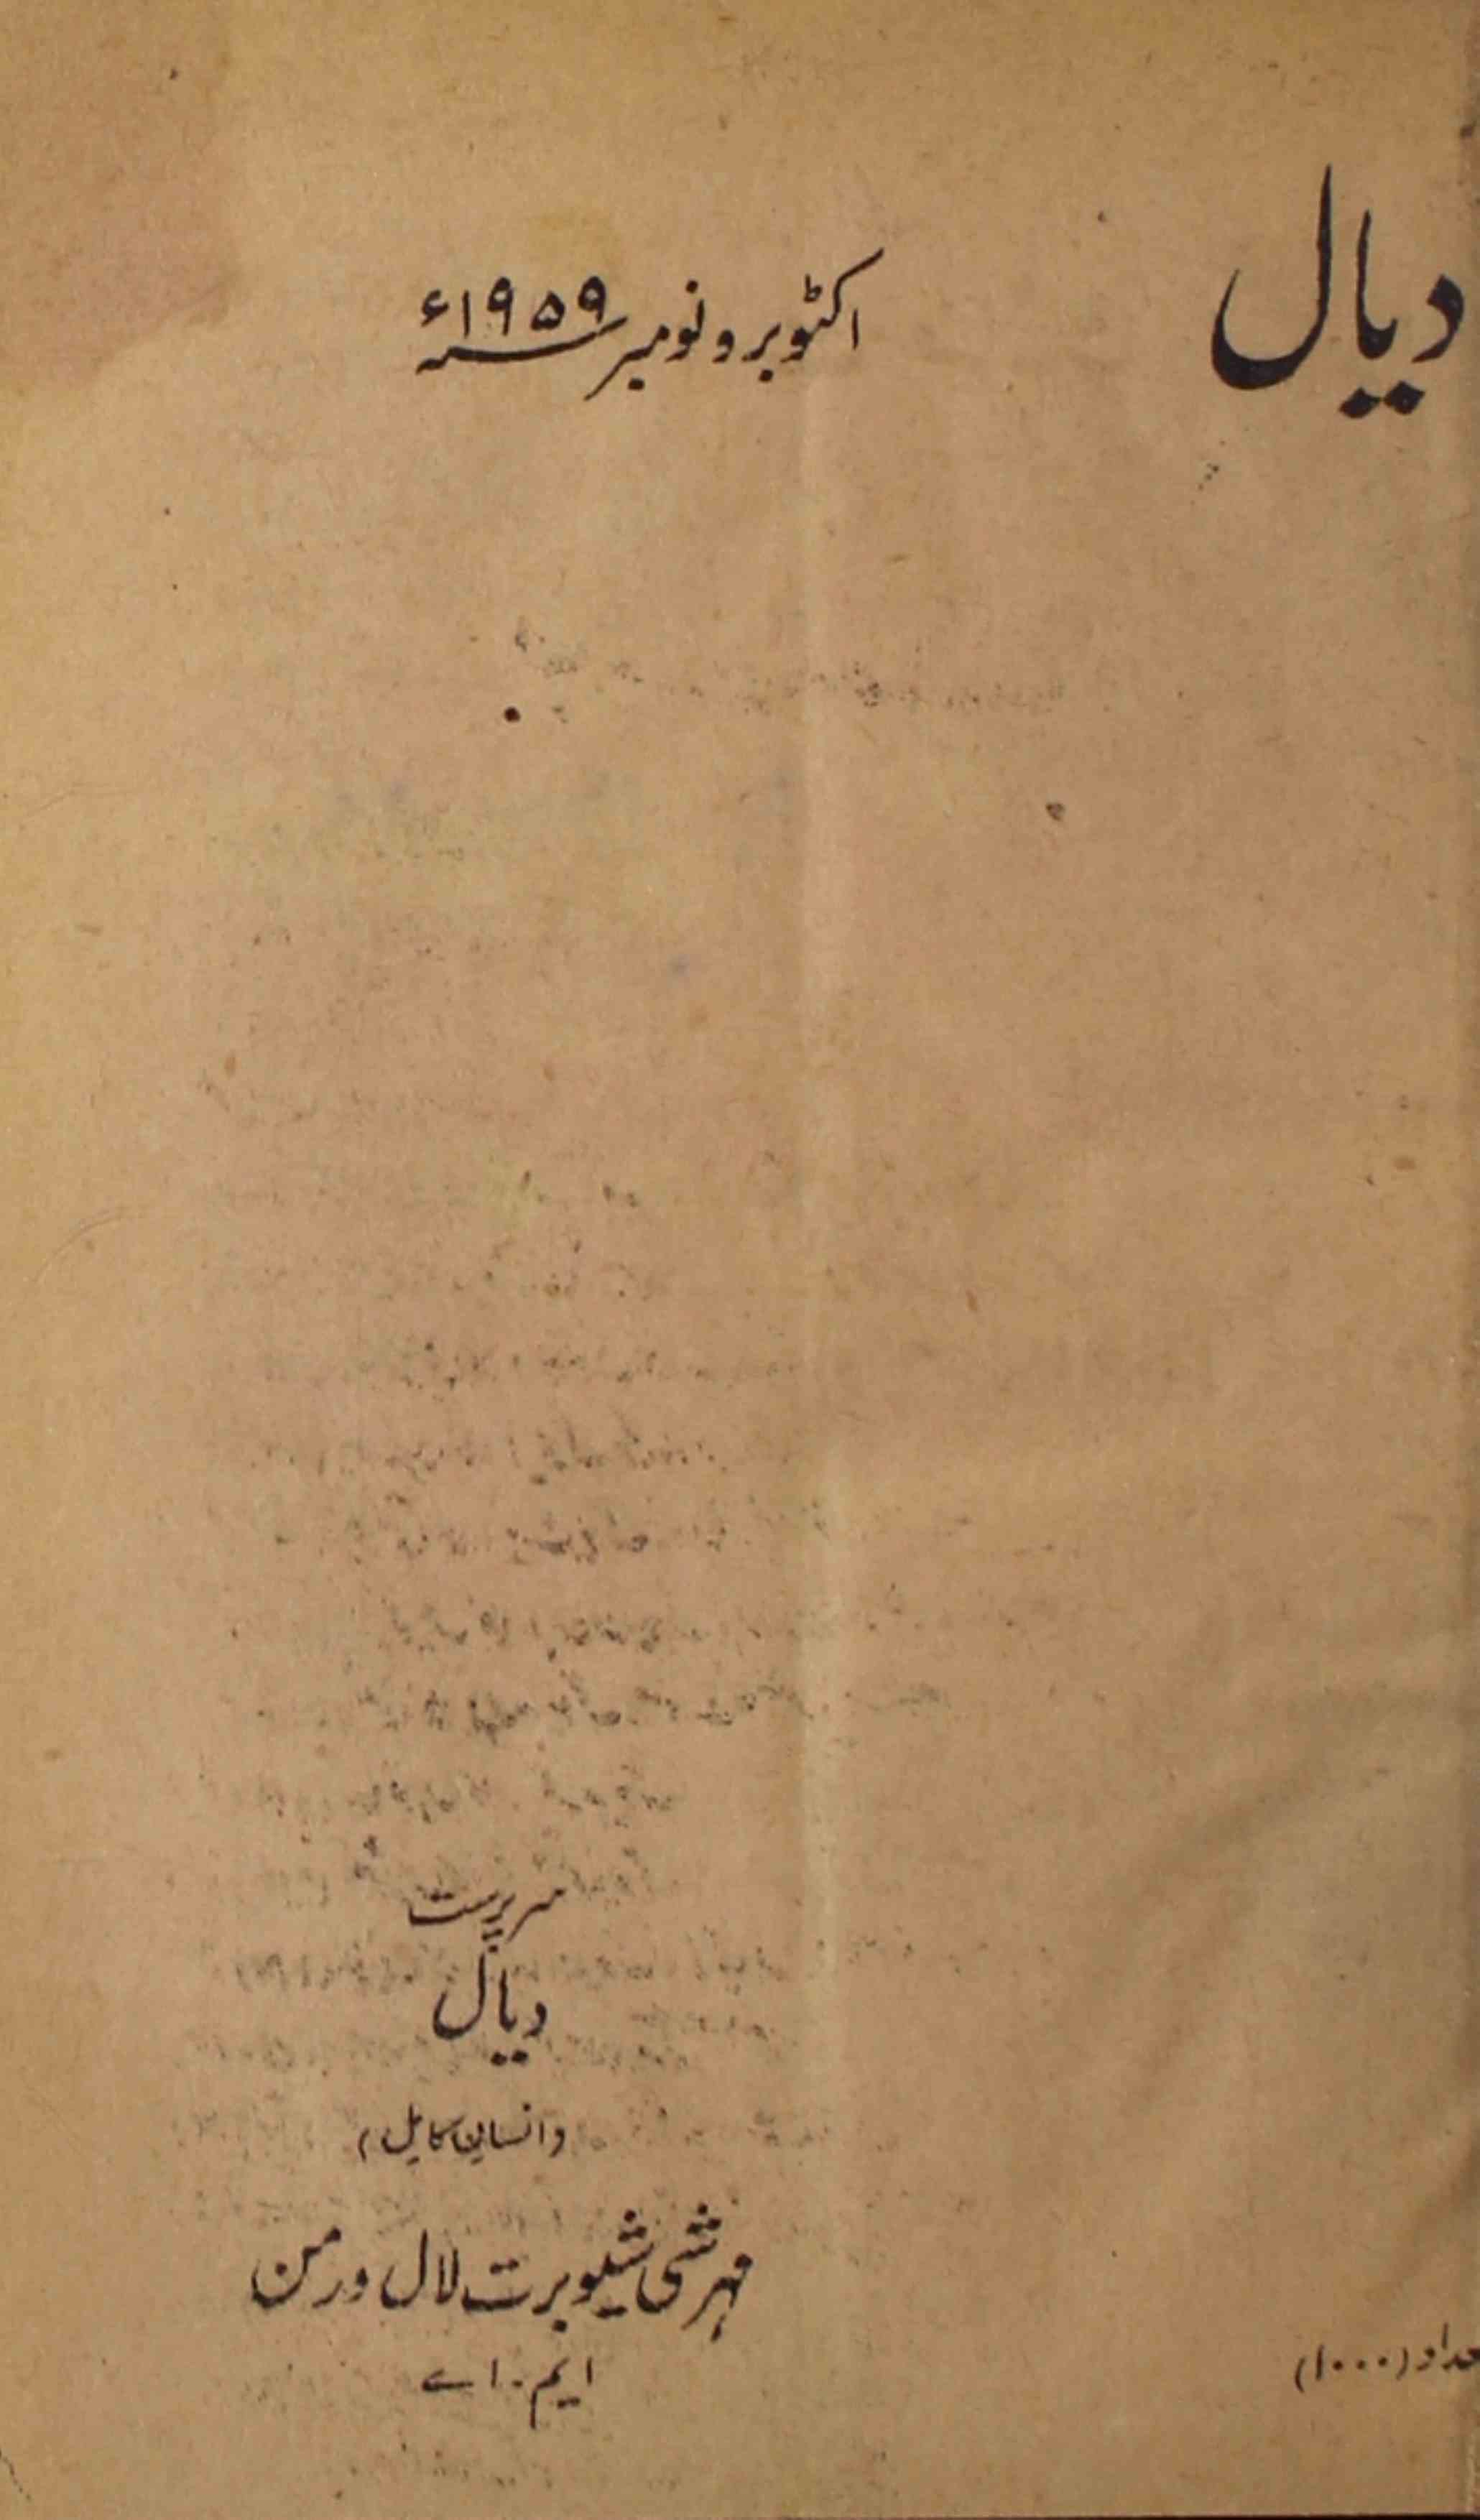 دیال
اکٹوبر و نومبر ۱۹۵۹ء
سرپرست
دیال
(انسان کامل)
مہرشی شیوبرت لال ورمن
ایم۔اے
(۱۰۰۰)